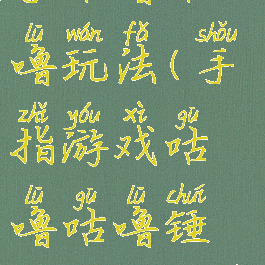 lū wán fǎ shǒu
噜玩法(手
zhǐ yóu xì gū
指游戏咕
lū gū lū chuí
噜咕噜锤